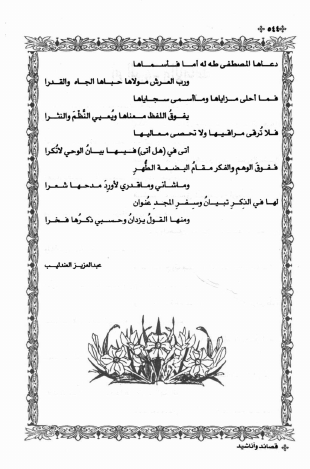 ٥٤٤
دعاها المصطفى طه له أما فأسماها
ورب العرش مولاها حباها الجاه والقدرا
فما أحلى مزاياها وما أسمى سجاياها
يفوقُ اللفظ معناها ويُعيي النَّظْمَ والنثرا
فلا تُرقى مراقيها ولا تحصى معاليها
أتى في (هل أتى) فيها بيانُ الوحي لا نُكرا
ففوقَ الوهم والفكر مقامُ البضعة الطُّهرِ
وماشأني وماقدري لأوردَ مدحها شعرا
لها في الذكرِ تبيانٌ وسِفر المجدِ عُنوان
ومنها القولُ يزدانُ وحسبي ذكرُها فخرا
عبدالعزيز العندليب
قصائد وأناشيد